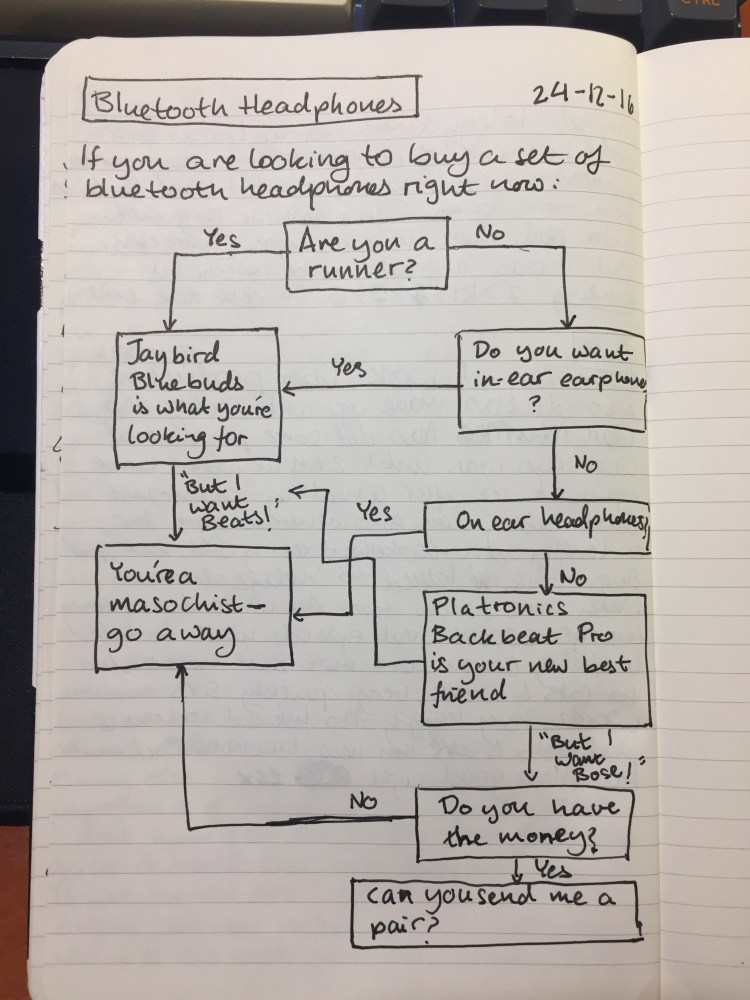 Bluetooth Headphones
24-12-16
If you are looking to buy a set of
bluetooth headphones right now:
Are you a
runner?
Yes
No
Jaybird
Bluebuds
is what you're
looking for
Yes
Do you want
in-ear earphone
?
No
"But I
want
Beats!"
Yes
On ear headphones?
No
You're a
masochist-
go away
Platronics
Backbeat Pro
is your new best
friend
"But I
want
Bose!"
No
Do you have
the money?
Yes
can you send me a
pair?
CTRL